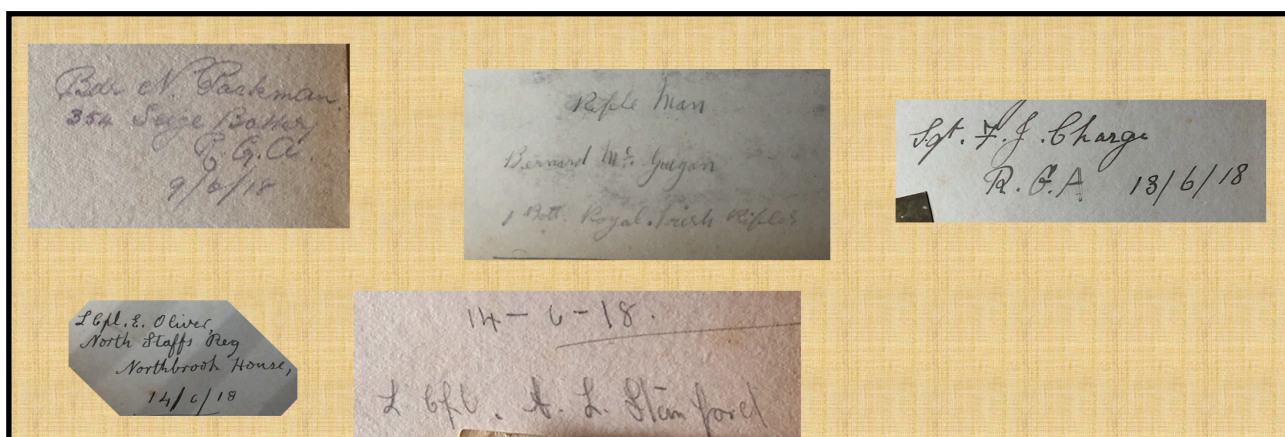 Bdr N. Packman.
354 Seige Battery
R.G.A.
9/6/18
Rifle Man
Bernard Mc. Guigan
1 Batt. Royal. Irish Rifles
Sgt. F. J. Charge
R. G. A 13/6/18
L Cpl. E. Oliver,
North Staffs Reg
Northbrook House,
14/6/18
14 - 6 - 18.
L Cpl. A. L. Stamford